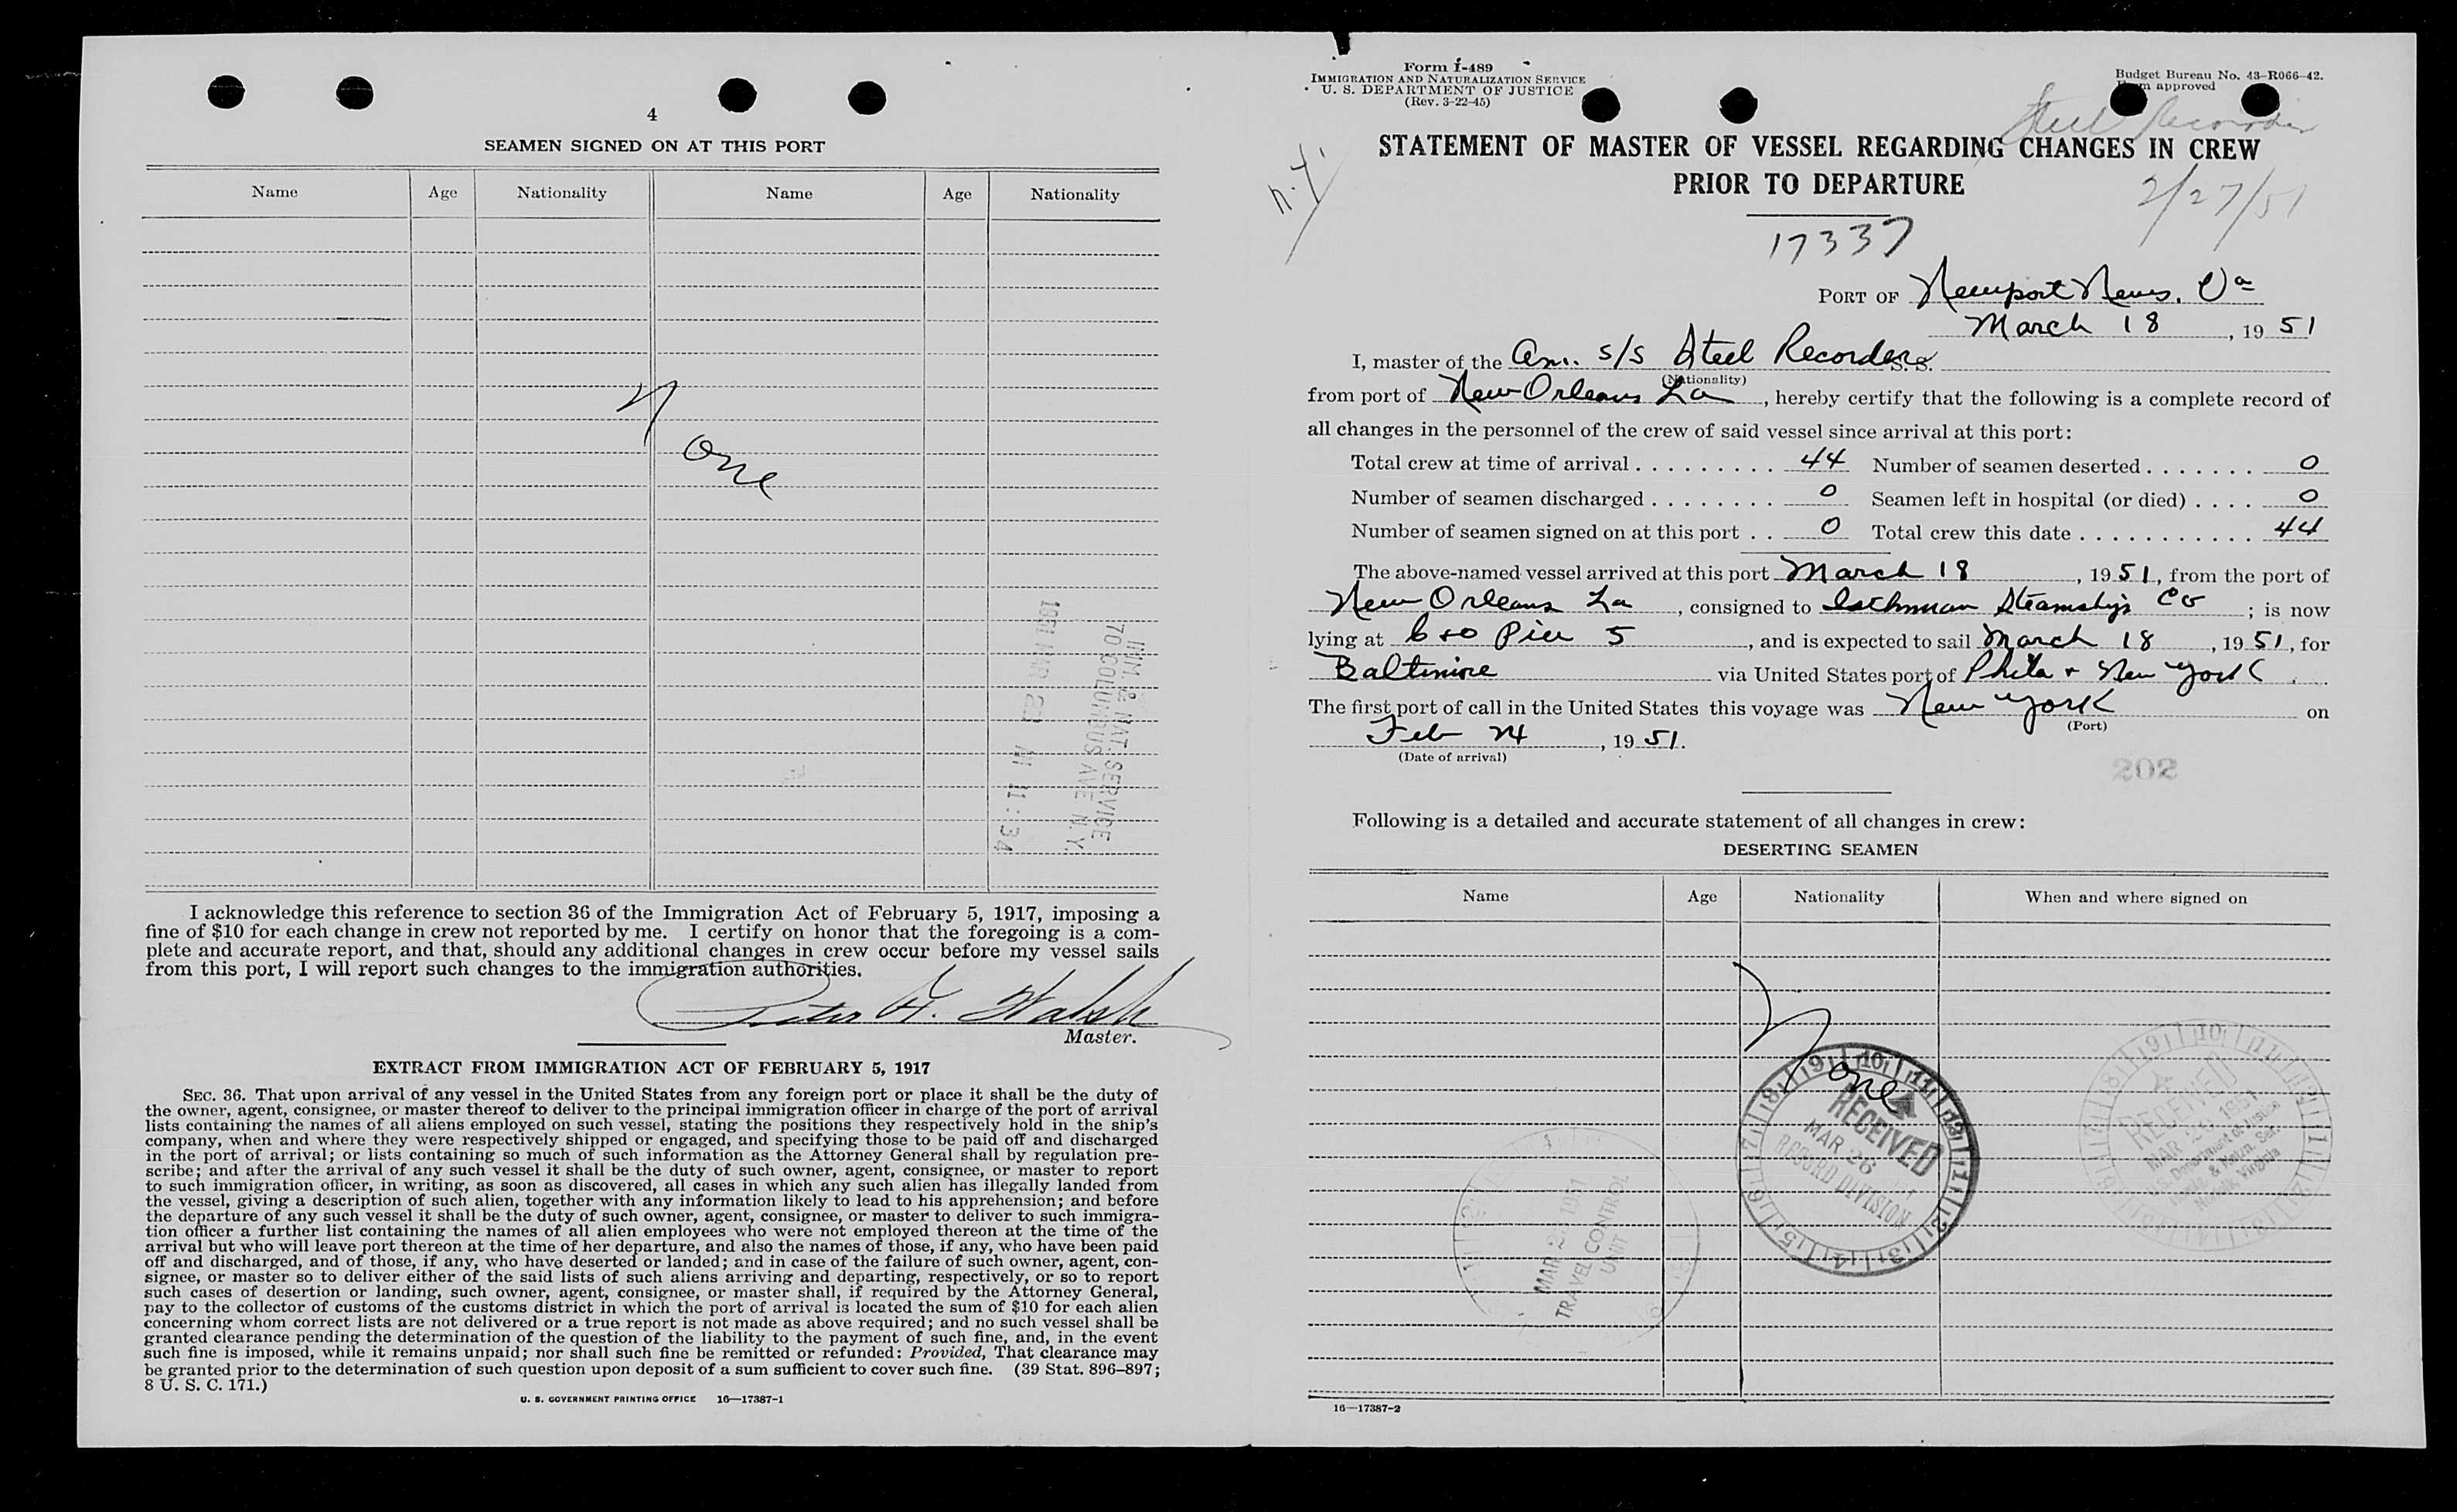 4
SEAMEN SIGNED ON AT THIS PORT
Name Age Nationality Name Age Nationality
None
IMM. & NAT. SERVICE
70 COLUMBUS AVE N.Y.
1951 MAR 22 AM 11:34
I acknowledge this reference to section 36 of the Immigration Act of February 5, 1917, imposing a
fine of $10 for each change in crew not reported by me. I certify on honor that the foregoing is a com-
plete and accurate report, and that, should any additional changes in crew occur before my vessel sails
from this port, I will report such changes to the immigration authorities.
Peter H. Walsh
Master.
EXTRACT FROM IMMIGRATION ACT OF FEBRUARY 5, 1917
SEC. 36. That upon arrival of any vessel in the United States from any foreign port or place it shall be the duty of
the owner, agent, consignee, or master thereof to deliver to the principal immigration officer in charge of the port of arrival
lists containing the names of all aliens employed on such vessel, stating the positions they respectively hold in the ship's
company, when and where they were respectively shipped or engaged, and specifying those to be paid off and discharged
in the port of arrival; or lists containing so much of such information as the Attorney General shall by regulation pre-
scribe; and after the arrival of any such vessel it shall be the duty of such owner, agent, consignee, or master to report
to such immigration officer, in writing, as soon as discovered, all cases in which any such alien has illegally landed from
the vessel, giving a description of such alien, together with any information likely to lead to his apprehension; and before
the departure of any such vessel it shall be the duty of such owner, agent, consignee, or master to deliver to such immigra-
tion officer a further list containing the names of all alien employees who were not employed thereon at the time of the
arrival but who will leave port thereon at the time of her departure, and also the names of those, if any, who have been paid
off and discharged, and of those, if any, who have deserted or landed; and in case of the failure of such owner, agent, con-
signee, or master so to deliver either of the said lists of such aliens arriving and departing, respectively, or so to report
such cases of desertion or landing, such owner, agent, consignee, or master shall, if required by the Attorney General,
pay to the collector of customs of the customs district in which the port of arrival is located the sum of $10 for each alien
concerning whom correct lists are not delivered or a true report is not made as above required; and no such vessel shall be
granted clearance pending the determination of the question of the liability to the payment of such fine, and, in the event
such fine is imposed, while it remains unpaid; nor shall such fine be remitted or refunded: Provided, That clearance may
be granted prior to the determination of such question upon deposit of a sum sufficient to cover such fine. (39 Stat. 896–897;
8 U. S. C. 171.)
U. S. GOVERNMENT PRINTING OFFICE 16—17387-1
Form I-489
IMMIGRATION AND NATURALIZATION SERVICE
U. S. DEPARTMENT OF JUSTICE
(Rev. 3-22-45)
Budget Bureau No. 43-R066-42.
approved
Steel Recorder
N.Y.
STATEMENT OF MASTER OF VESSEL REGARDING CHANGES IN CREW
PRIOR TO DEPARTURE
2/27/51
17337
PORT OF Newport News, Va
March 18, 19 51
I, master of the Am. s/s Steel Recorder S. S.
(Nationality)
from port of New Orleans La, hereby certify that the following is a complete record of
all changes in the personnel of the crew of said vessel since arrival at this port:
Total crew at time of arrival . . . . . . . . . 44 Number of seamen deserted . . . . . . . 0
Number of seamen discharged . . . . . . . . 0 Seamen left in hospital (or died) . . . . 0
Number of seamen signed on at this port . . 0 Total crew this date . . . . . . . . . . . 44
The above-named vessel arrived at this port March 18, 19 51, from the port of
New Orleans La, consigned to Isthmian Steamship Co; is now
lying at C&O Pier 5, and is expected to sail March 18, 19 51, for
Baltimore via United States port of Phila + New York
The first port of call in the United States this voyage was New York on
(Port)
Feb 24, 19 51.
(Date of arrival)
202
Following is a detailed and accurate statement of all changes in crew:
DESERTING SEAMEN
Name Age Nationality When and where signed on
None
RECEIVED
MAR 26
RECORD DIVISION
RECEIVED
MAR 20 1951
U.S. Department of Justice
Immig. & Natur. Ser.
Norfolk, Virginia
1951
TRAVEL CONTROL
UNIT
16—17387-2